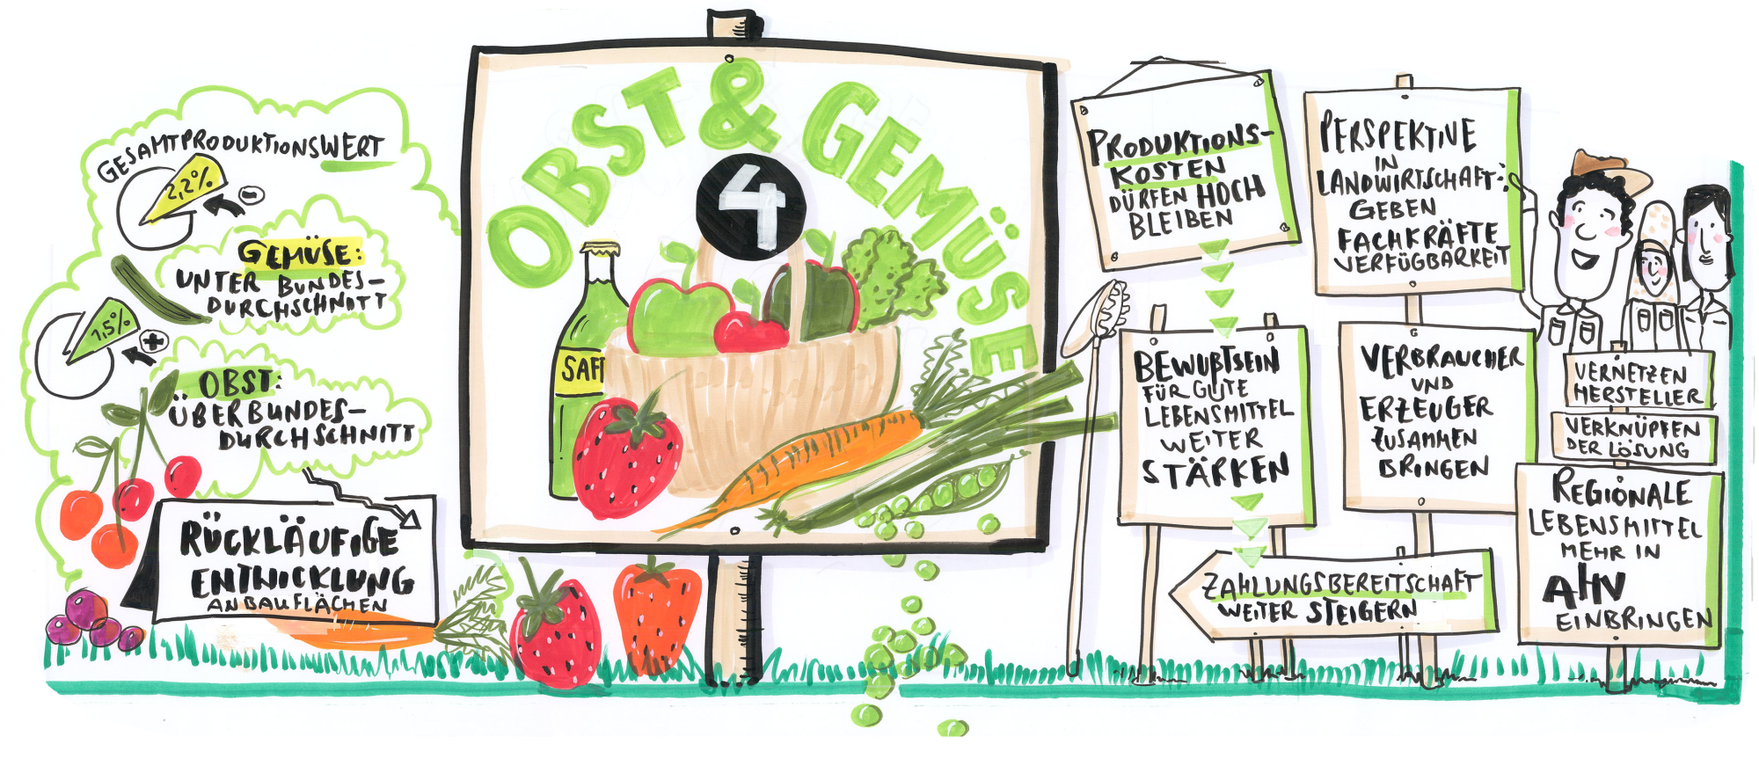 GESAMTPRODUKTIONSWERT
2,2%
-
GEMÜSE:
UNTER BUNDES-
DURCHSCHNITT
1,5%
+
OBST:
ÜBER BUNDES-
DURCHSCHNITT
RÜCKLÄUFIGE
ENTWICKLUNG
ANBAUFLÄCHEN
OBST & GEMÜSE
4
SAFT
PRODUKTIONS-
KOSTEN
DÜRFEN HOCH
BLEIBEN
BEWUßTSEIN
FÜR GUTE
LEBENSMITTEL
WEITER
STÄRKEN
ZAHLUNGSBEREITSCHAFT
WEITER STEIGERN
PERSPEKTIVE
IN
LANDWIRTSCHAFT:
GEBEN
FACHKRÄFTE
VERFÜGBARKEIT
VERBRAUCHER
UND
ERZEUGER
ZUSAMMEN
BRINGEN
VERNETZEN
HERSTELLER
VERKNÜPFEN
DER LÖSUNG
REGIONALE
LEBENSMITTEL
MEHR IN
AHV
EINBRINGEN